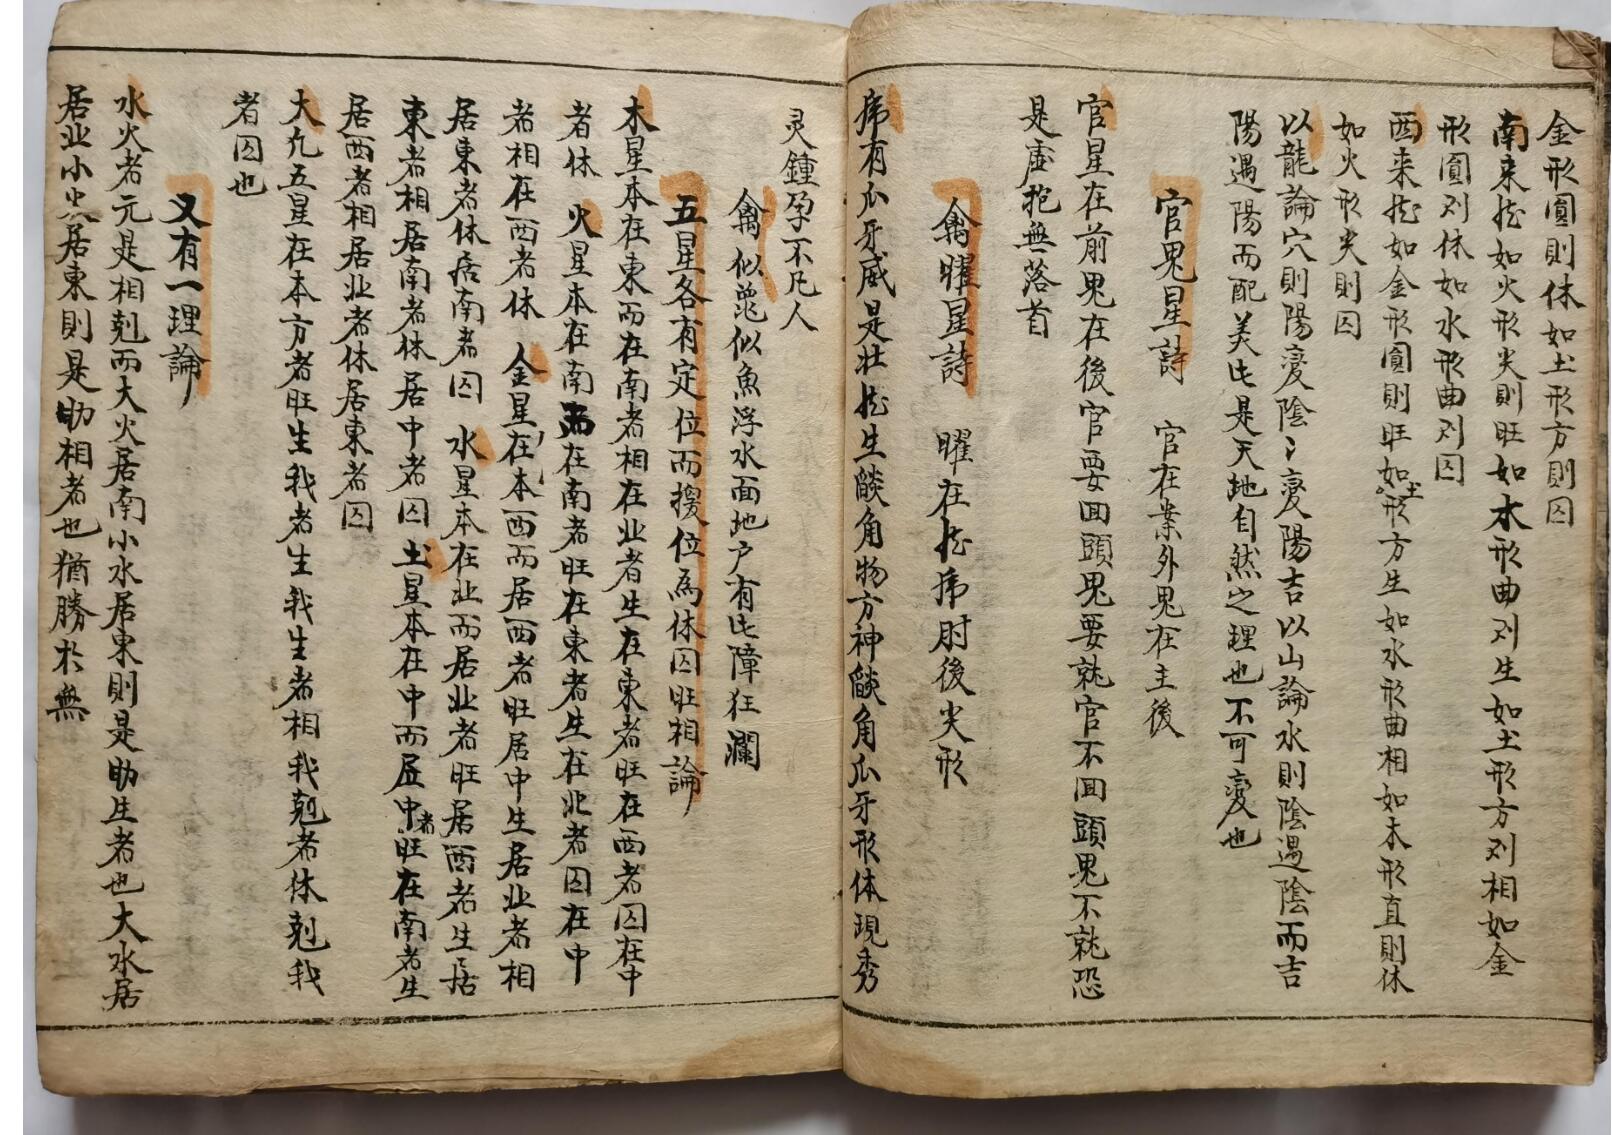 金形圓則休如土形方則囚
南来龙如火形尖則旺如木形曲则生如土形方则相如金
形圓则休如水形曲则囚
西来龙如金形圓則旺如土形方生如水形曲相如木形直則休
如火形尖則囚
以龍論穴則陽变陰〻变陽吉以山論水則陰遇陰而吉
陽遇陽而配美此是天地自然之理也不可变也
官鬼星詩 官在案外鬼在主後
官星在前鬼在後官要回頭鬼要就官不回頭鬼不就恐
是虛抱無落首
禽曜星詩 曜在龙虎肘後尖形
虎有瓜牙威是壮龙生餤角物方神餤角瓜牙形体現秀
灵鍾孕不凡人
禽似龟似魚浮水面地户有此障狂瀾
五星各有定位而援位為休囚旺相論
木星本在東而在南者相在北者生在東者旺在西者囚在中
者休 火星本在南而在南者旺在東者生在北者囚在中
者相在西者休 金星在本西而居西者旺居中生居北者相
居東者休居南者囚 水星本在北而居北者旺居西者生居
東者相居南者休居中者囚 土星本在中而居中者旺在南者生
居西者相居北者休居東者囚
大凢五星在本方者旺生我者生我生者相我剋者休剋我
者囚也
又有一理論
水火者元是相剋而大火居南小水居東則是助生者也大水居
居北小火居東則是助相者也猶勝於無